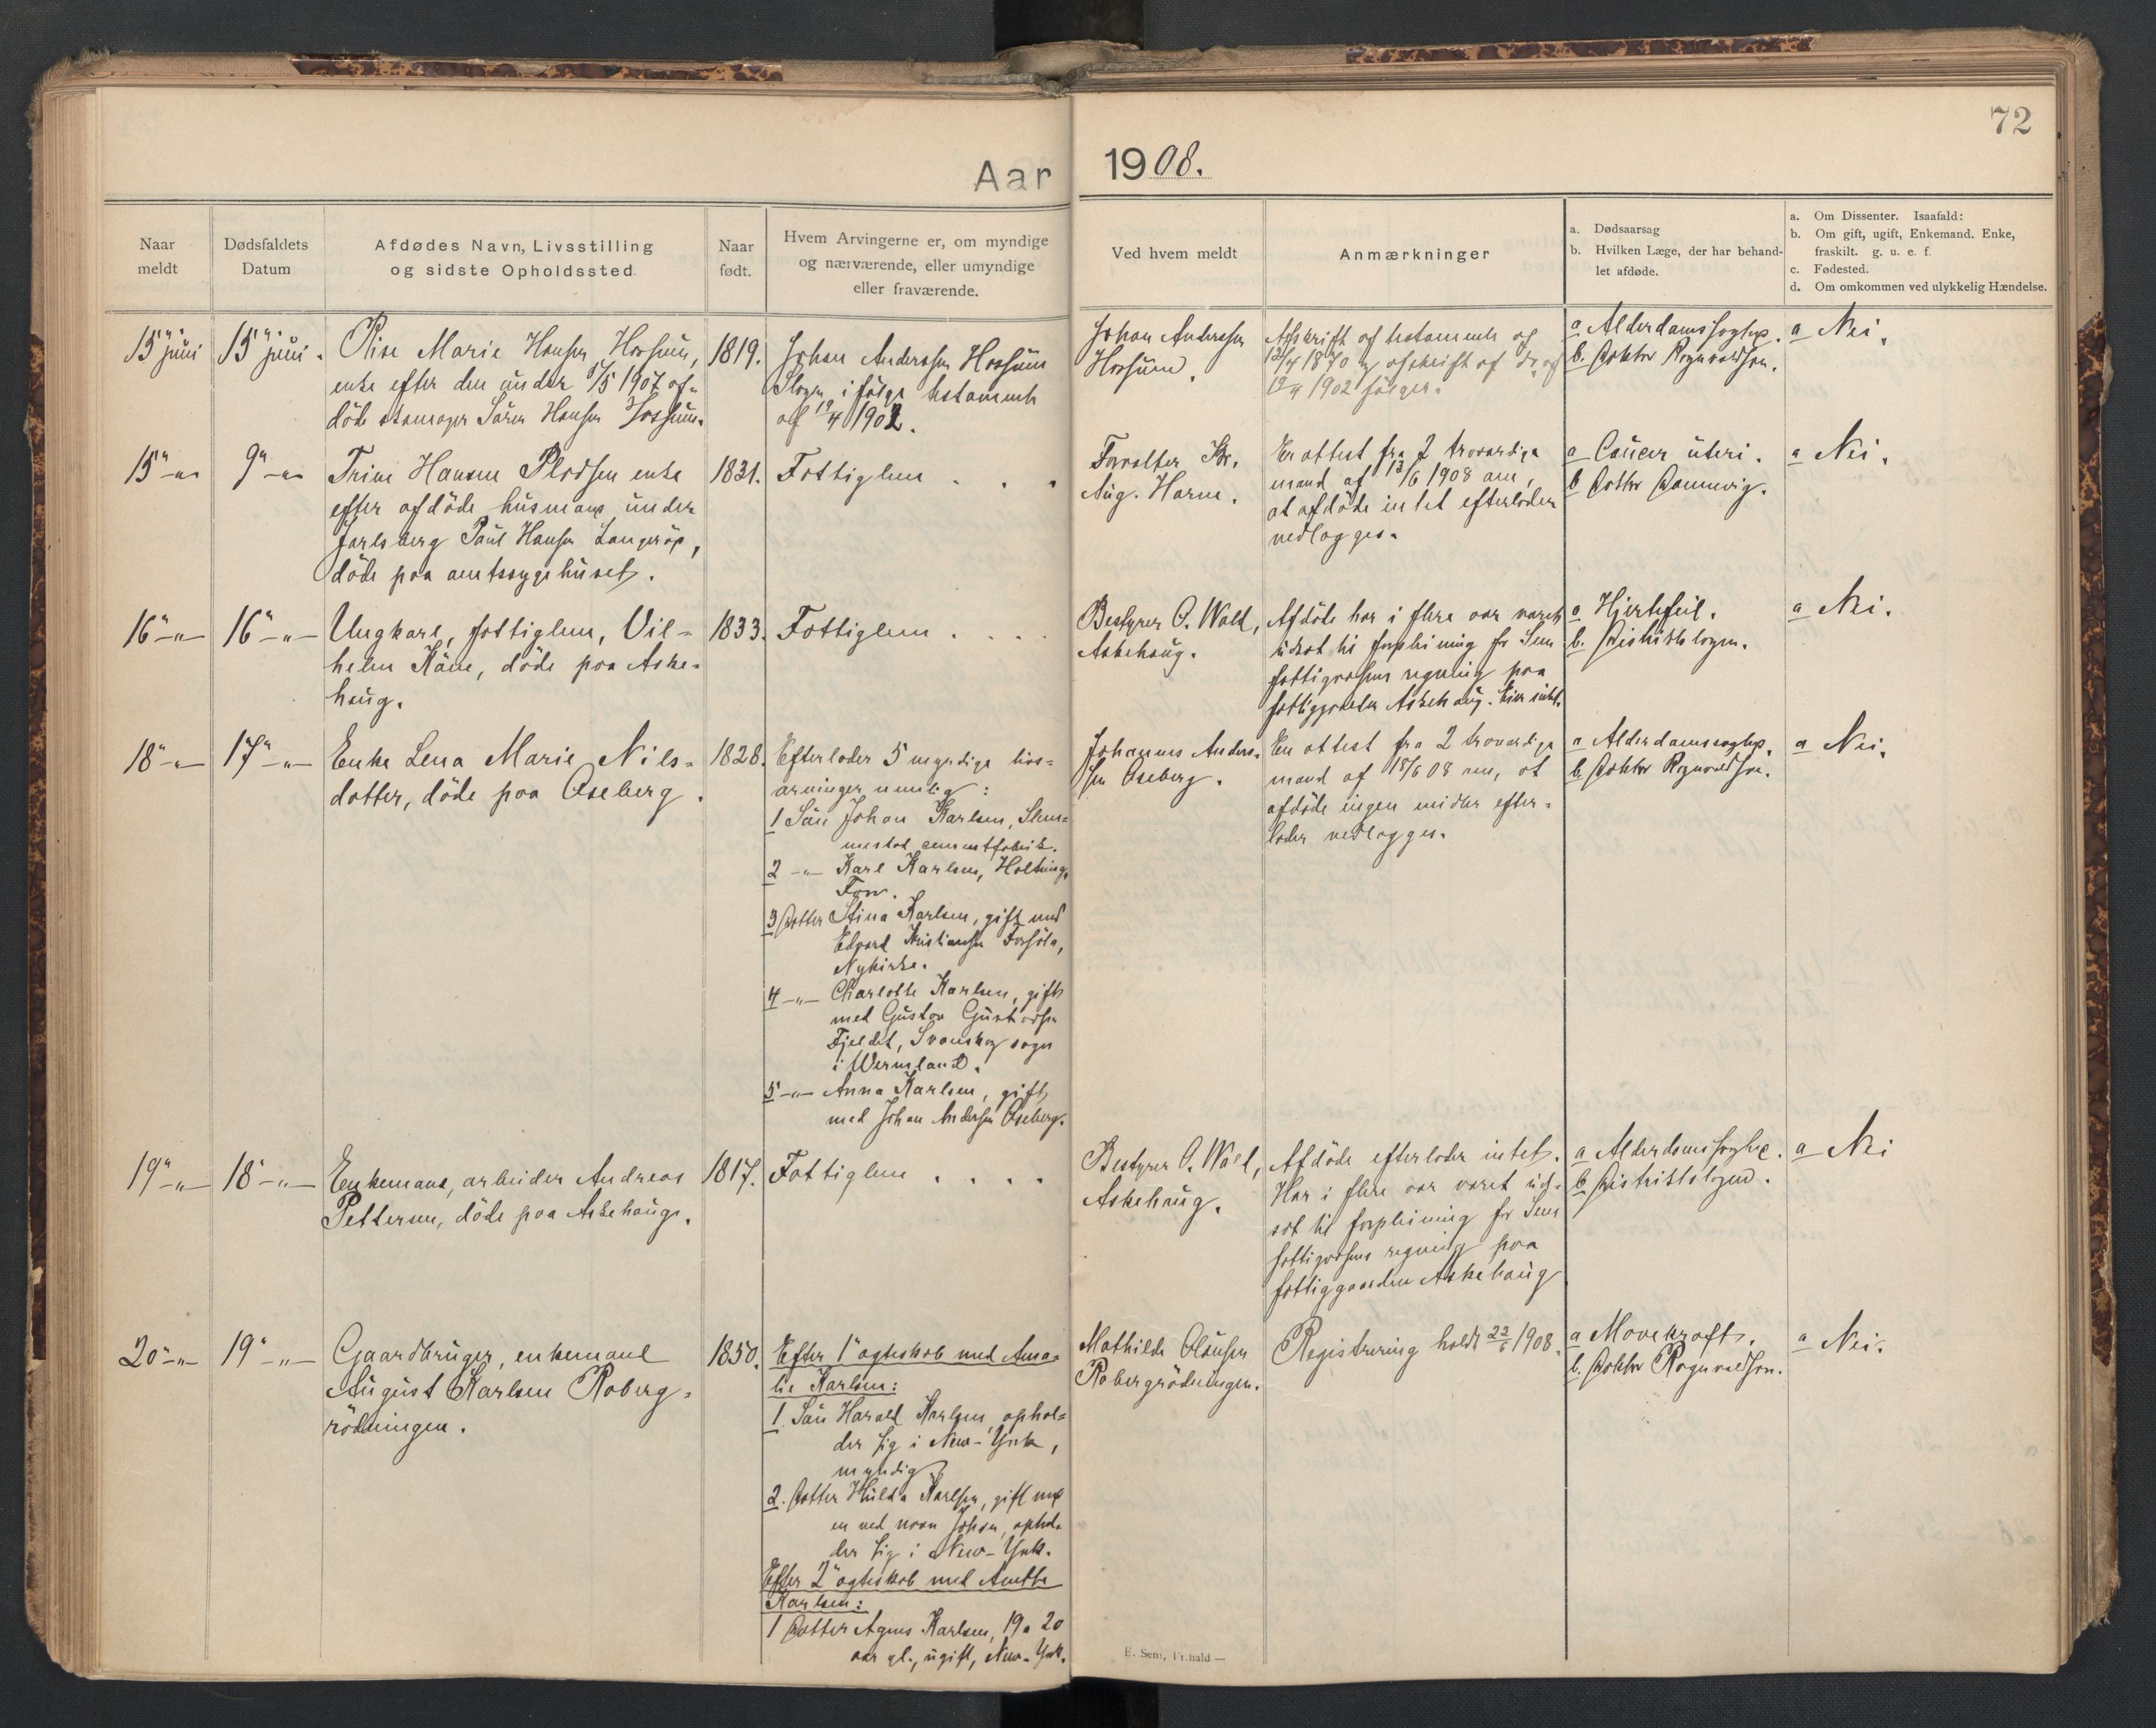 72
Aar 1908.
Naar meldt
Dødsfaldets Datum
Afdødes Navn, Livsstilling og sidste Opholdssted.
Naar født.
Hvem Arvingerne er, om myndige og nærværende, eller umyndige eller fraværende.
Ved hvem meldt
Anmærkninger
a. Dødsaarsag
b. Hvilken Læge, der har behandlet afdøde.
a. Om Dissenter. Isaafald:
b. Om gift, ugift, Enkemand, Enke, fraskilt. g. u. e. f.
c. Fødested.
d. Om omkommen ved ulykkelig Hændelse.
15" juni
15" juni.
Marie Hansen
enke efter den under 5/5 1907 af-
døde Søren Hansen
1819.
Johan Anderssen
i følge testamente
af 19/4 1902.
Johan Anderssen
Afskrift af testamente af
12/4 1870 og afskrift af do af
19/4 1902 følger.
a Alderdomssvaghed.
b. Doktor Rognvaldson.
a Nei.
15"-"-
9"-"-
Trine Hansen enke
efter afdøde husmand under
Jarlsberg Paul Hansen
døde paa amtssygehuset.
1831.
Fattiglem . . .
Forvalter Chr.
Aug. Horne.
En attest fra 2 troværdige
mænd af 13/6 1908 om,
at afdøde intet efterlader
vedlægges.
a Cancer uteri.
b Doktor Dannevig.
a Nei.
16"-"-
16"-"-
Ungkarl, fattiglem, Vil-
helm Käne, døde paa Aske-
haug.
1833.
Fattiglem . . . .
Bestyrer O. Wold,
Askehaug.
Afdøde har i flere aar været
udsat til forpleining for Sem
fattigvæsens regning paa
fattiggaarden Askehaug. Eier intet.
a Hjertefeil.
b. Distriktslægen.
a Nei.
18"-"-
17"-"-
Enke Lena Marie Nils-
datter, døde paa Oseberg.
1828.
Efterlader 5 myndige livs-
arvinger nemlig:
1 Søn Johan Karlsen, Slem-
mestad cementfabrik.
2 -"- Karl Karlsen,
3 Datter Stina Karlsen, gift med
Edvard Kristiansen
Nykirke.
4 -"- Charlotte Karlsen, gift
med Gustav Gustavsen
Fjeldet, Svanskog sogn
i Wermland.
5 -"- Anna Karlsen, gift
med Johan Andersen Oseberg.
Johannes Anders-
sen Oseberg.
En attest fra 2 troværdige
mænd af 18/6 08 om, at
afdøde ingen midler efter-
lader vedlægges.
a Alderdomssvaghed.
b. Doktor Rognvaldson.
a Nei.
19"-"-
18"-"-
Enkemand, arbeider Andreas
Pettersen, døde paa Askehaug.
1817.
Fattiglem . . . .
Bestyrer O. Wold,
Askehaug.
Afdøde efterlader intet.
Har i flere aar været ud-
sat til forpleining for Sem
fattigvæsens regning paa
fattiggaarden Askehaug
a Alderdomssvaghed.
b Distriktslægen.
a Nei
20"-"-
19"-"-
Gaardbruger, enkemand
August Karlsen Roberg-
rödningen.
1850.
Efter 1" ægteskab med Ama-
lie Karlsen:
1. Søn Harald Karlsen, ophol-
der sig i New-York,
myndig
2. Datter Hulda Karlsen, gift med
en ved navn ophol-
der sig i New-York.
Efter 2" ægteskab med Anette
Karlsen:
1 Datter Agnes Karlsen, 19 a 20
aar gl., ugift, New-York.
Mathilde Olausen
Robergrödningen.
Registrering holdt 22/6 1908.
a Mavekræft.
b. Doktor Rognvaldson.
a Nei.
E. Sem, Fr.hald —